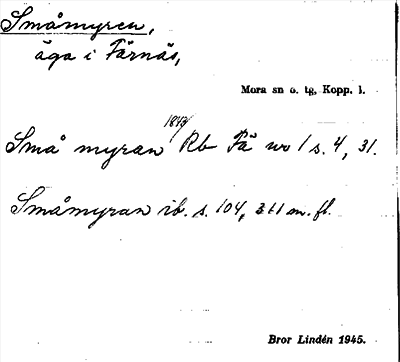 Småmyren,
äga i Färnäs,
Mora sn o. tg, Kopp. l.
Små myran 1843/ Rb Fä no 1 s. 4, 31.
Småmyran ib. s. 104, 311 m. fl.
Bror Lindén 1945.